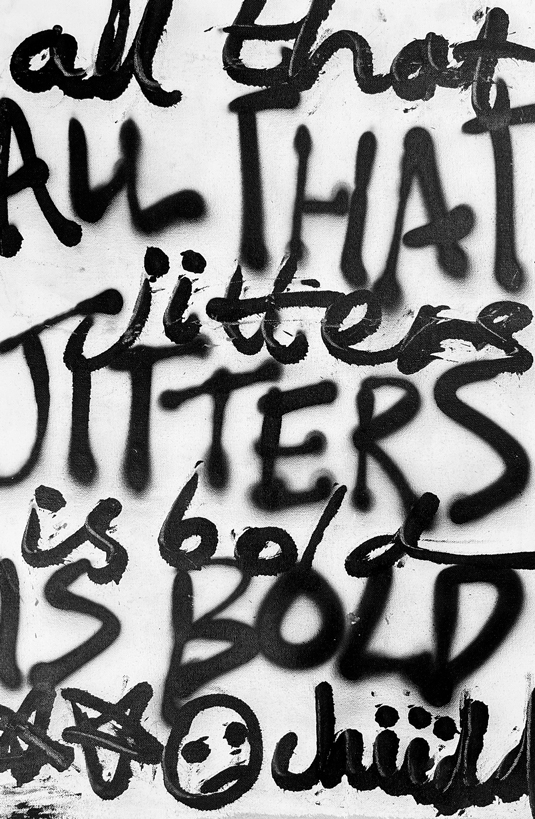 all that
ALL THAT
jitters
JITTERS
is bold
IS BOLD